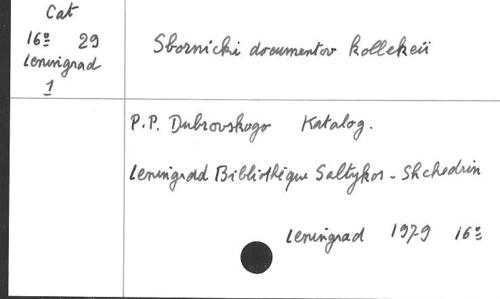 Cat
16º 29
Leningrad
1
Sbornicki documentov kollekcii
P.P. Dubrovskogo Katalog.
Leningrad Bibliothèque Saltykos - Shchedrin
Leningrad 1979 16º